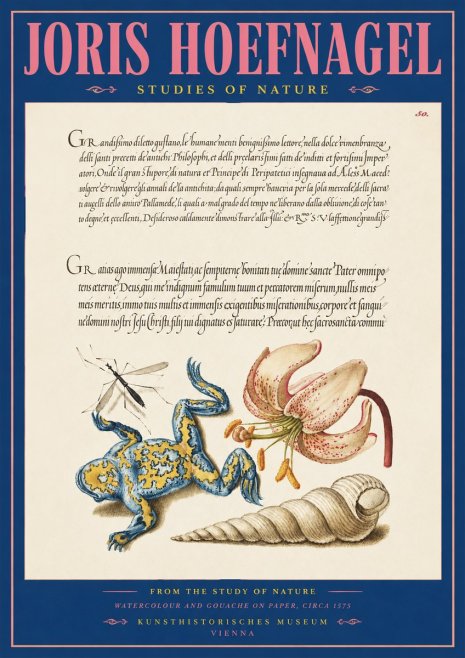 JORIS HOEFNAGEL
STUDIES OF NATURE
50.
GRandissimo diletto gustano, le humane menti benignissimo lettore, nella dolce rimembranza,
delli santi precetti de antichi Philosophi, et delli preclarissimi fatti de inditi et fortissimi Imper
atori. Onde il gran Stupore di natura et Principe di Peripatetici insegnaua ad Aless. Maced.
volgere & rivolgere gli annali de la antichità, da quali sempre haueria per la sola mercede delli sacra
ti augelli dello amiro Pallamede, li quali a malgrado del tempo ne liberano dalla oblivione di cose tan
to degne, et eccellenti. Desideroso caldamente dimonstrare alla & R S V laffettione
GRatias ago immensæ Maiestati, ac sempiternæ bonitati tuæ, domine sancte Pater omnipo
tens æterne Deus, qui me indignum famulum tuum et peccatorem miserum, nullis meis
meis meritis, immo tuis multis et immensis exigentibus miserationibus, corpore et sangui
ne domini nostri Jesu Christi filij tui dignatus es saturare. Precor, ut hec sacrosancta commu
FROM THE STUDY OF NATURE
WATERCOLOUR AND GOUACHE ON PAPER, CIRCA 1575
KUNSTHISTORISCHES MUSEUM
VIENNA